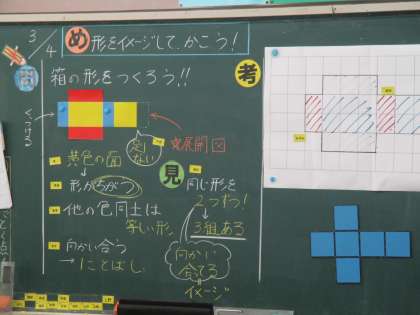 3/4
め 形をイメージして、かこう!
問 箱の形をつくろう!!
考
足りない
☆展開図
黄色の面
↓
形がちがう
他の色同士は
等しい形
向かい合う
→にとばし
見 同じ形を
2つずつ!
↓
3組ある
向かい合ってる
イメージ